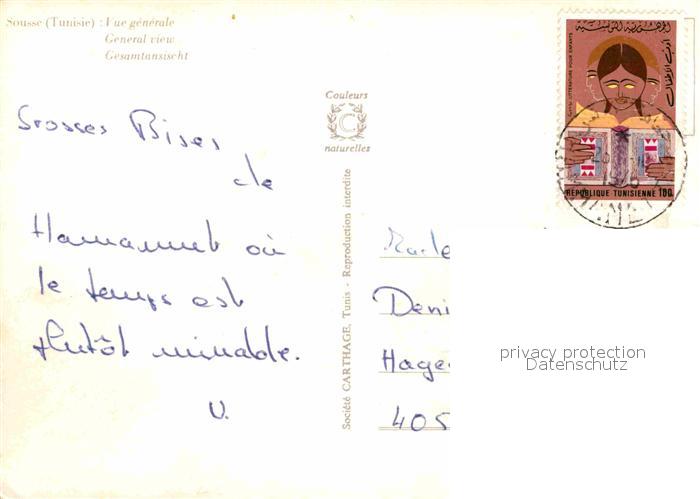 Sousse (Tunisie) : Vue générale
General view
Gesamtansischt
Grosses Bises
de
Hamammet où
le temps est
plutôt minable.
V.
Couleurs
C
naturelles
Société CARTHAGE, Tunis - Reproduction interdite
الجمهورية التونسية
أدب الأطفال
LITTERATURE POUR ENFANTS
REPUBLIQUE TUNISIENNE 100
Deni
Hage
405
privacy protection
Datenschutz